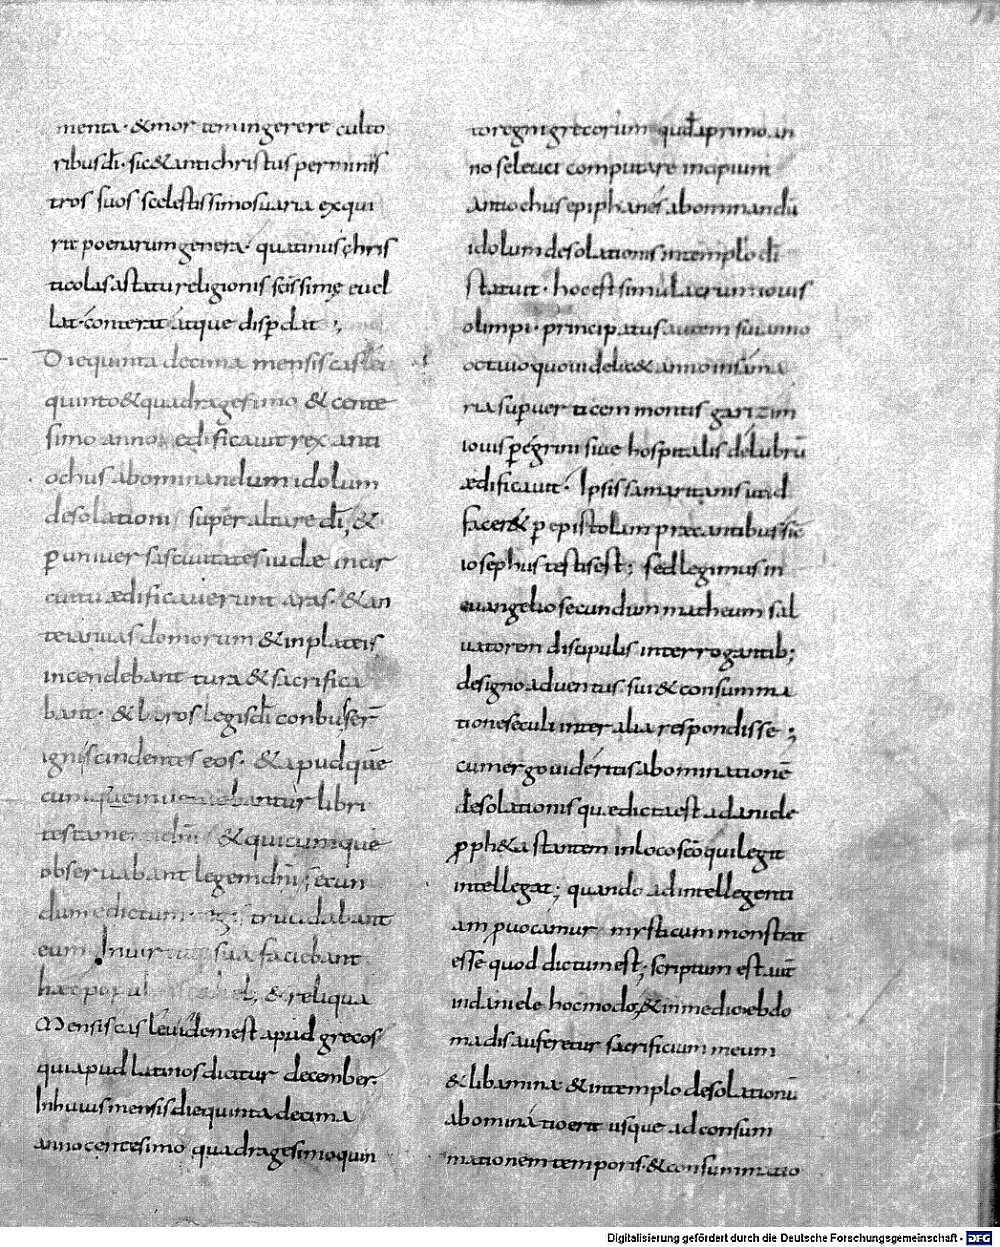 menta· &mortem ingerere culto
ribus dī· sic & antichristus per minis
tros suos scelestissimos uaria exqui
rit poenarum genera· quatinus chris
ticolas a statu religionis scissime euel
lat· conterat atque disperdat ;,
Die quinta decima mensis casleu
quinto & quadragesimo & cente
simo anno edificauit rex anti
ochus abominandum idolum
desolationis super altare dī, &
per uniuersas ciuitates iudae incir
cuitu ædificauerunt aras· & an
te ianuas domorum & in plateis
incendebant tura & sacrifica
bant· & libros legis dī conbussert̄
ignis cindentes eos· & apud quē
cumque inueniebantur libri
testamenti dn̄i & quicumque
obseruabant legem dn̄i; secun
dum edictum regis trucidabant
eum. In uirtute sua faciebant
haec populo israhel; & reliqua
Mensis casleu idem est apud grecos
qui apud latinos dicitur december.
In huius mensis die quinta decima
anno centesimo quadragesimo quin
to regni grecorum quod a primo an
no seleuci computare incipiunt
antiochus epiphanes abominandū
idolum desolationis in templo dī
statuit· hoc est simulacrum iouis
olimpi· principatus autem sui anno
octauo quo iudeae & anno in sama
ria super uerticem montis garizim
iouis peregrini siue hospitalis delubrū
ædificauit· Ipsis samaritanis ut id
facer& per epistolam præcantibus sic
iosephus testis est; sed legimus in
euangelio secundum matheum sal
uatorem discipulis interrogantib;
de signo aduentus sui & consumma
tione seculi inter alia respondisse ;
cum ergo uideritis abominationē
desolationis quæ dicta est a daniele
proph&a stantem in loco scō qui legit
intellegat; quando ad intellegenti
am prouocamur mysticum monstrat
esse quod dictum est; scriptum est aut̄
in daniele hoc modo; & in medio ebdo
madis auferetur sacrificium meum
& libamina & in templo desolationū
abominatio erit usque ad consum
mationem temporis· & consummatio
Digitalisierung gefördert durch die Deutsche Forschungsgemeinschaft - DFG